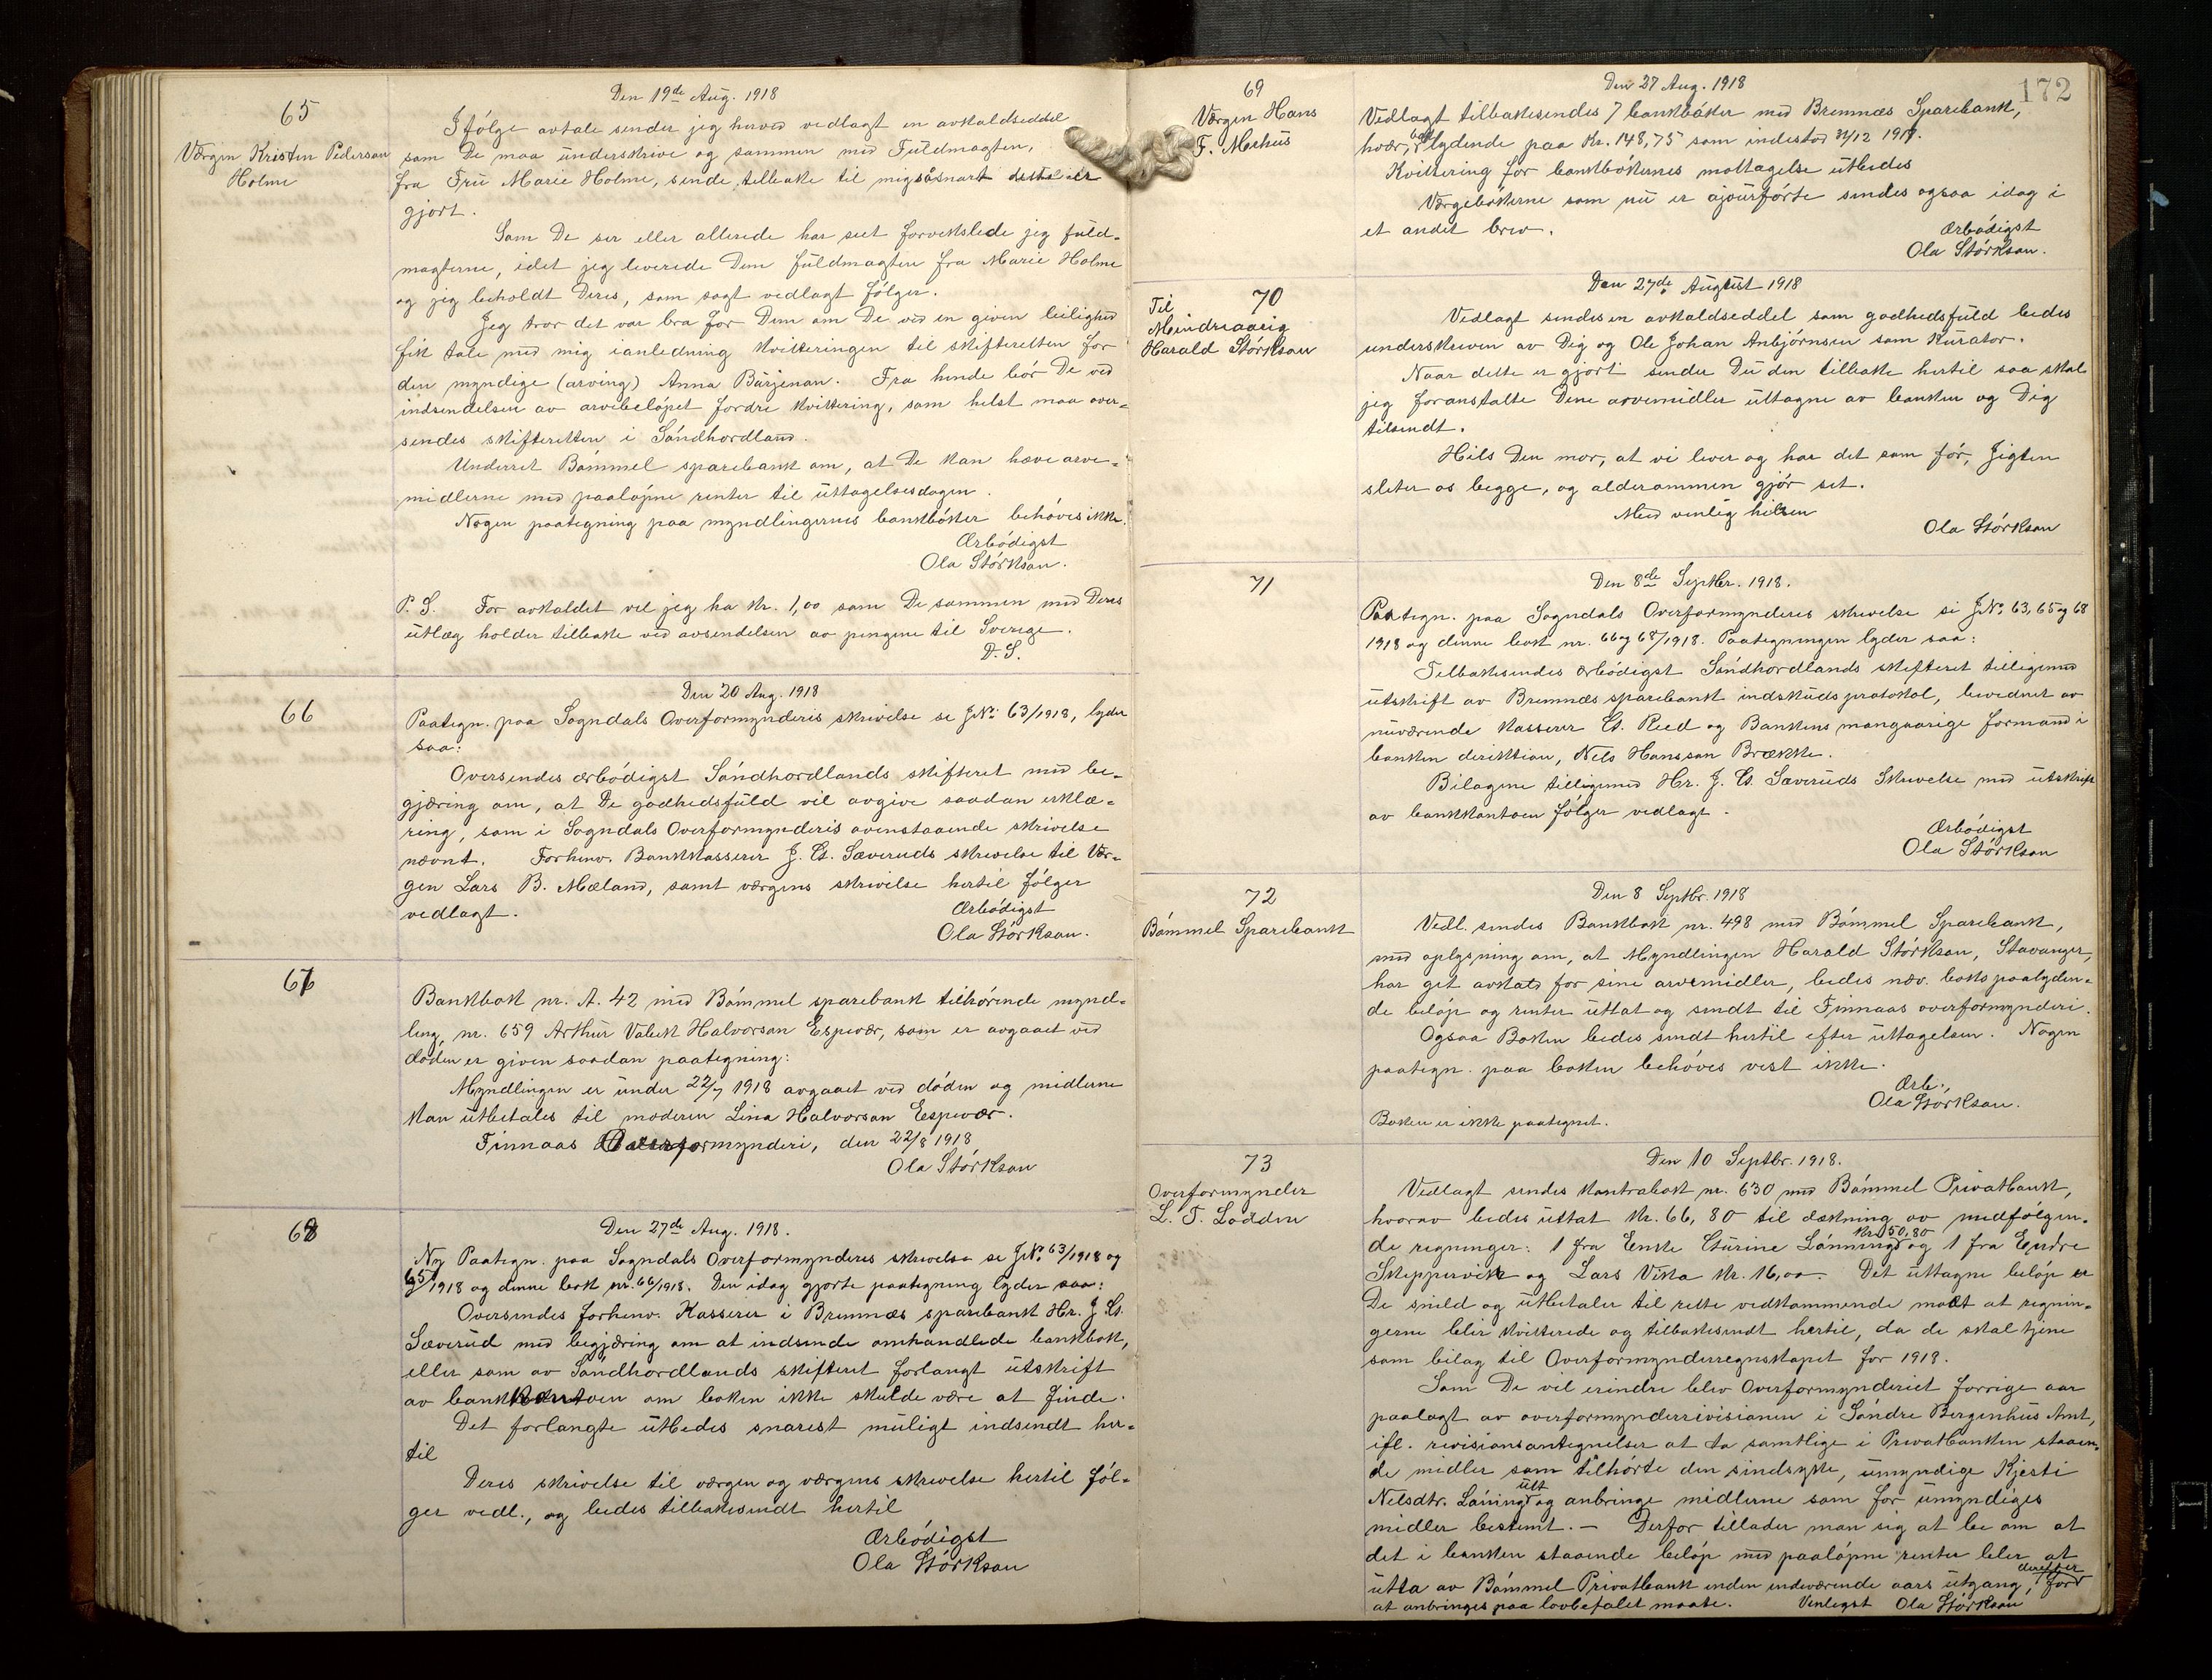 65
Værgen Kristen Pederson
Holme
Den 19de Aug. 1918
Ifölge avtale sender jeg herved vedlagt en avkaldseddel
som De maa underskrive og sammen med Fuldmagten,
fra Fru Marie Holme, sende tilbake til mig såsnart dette er
gjort.
Som De ser eller allerede har seet forvekslede jeg fuld-
magterne, idet jeg leverede Dem fuldmagten fra Marie Holme
og jeg beholdt Deres, som sagt vedlagt fölger.
Jeg tror det var bra for Dem om De ved en given leilighed
fik tale med mig ianledning kvitteringen til skifteretten for
den myndige (arving) Anna Bärjenan. Fra hende bör De ved
indsendelsen av arvebelöpet fordre kvittering, som helst maa over-
sendes skifteretten i Söndhordland.
Underret Bömmel sparebank om, at De kan hæve arve-
midlerne med paalöpne renter til uttagelsesdagen.
Nogen paategning paa myndlingernes bankböker behöves ikke.
Ærbödigst
Ola Störkson.
P. S. For avkaldet vil jeg ha kr. 1,00 som De sammen med Deres
utlæg holder tilbake ved avsendelsen av pengene til Sverige.
D. S.
66
Den 20 Aug. 1918
Paategn. paa Sogndals Overformynderis skrivelse se JNo: 63/1918, lyder
saa:
Oversendes ærbödigst Söndhordlands skifteret med be-
gjæring om, at De godhedsfuld vil avgive saadan erklæ-
ring, som i Sogndals Overformynderis ovenstaaende skrivelse
nævnt. Forhenv. Bankkasserer J. Et. Sæveruds skrivelse til Vær-
gen Lars B. Mæland, samt værgens skrivelse hertil fölger
vedlagt.
Ærbödigst
Ola Störkson.
67
Bankbok nr. A. 42 med Bömmel sparebank tilhörende mynd-
ling, nr. 659 Arthur Valeck Halvorson Espevær, som er avgaaet ved
döden er given saadan paategning:
Myndlingen er under 22/7 1918 avgaaet ved döden og midlerne
kan utbetales til moderen Lina Halvorson Espevær.
Finnaas Overformynderi, den 22/8 1918
Ola Störkson
68
Den 27de Aug. 1918.
Ny Paategn. paa Sogndals Overformynderis skrivelse se JNo. 63/1918 og
65/1918 og denne bok nr. 66/1918. Den idag gjorte paategning lyder saa:
Oversendes forhenv. Kasserer i Bremnæs sparebank Hr. J. Et.
Sæverud med begjæring om at indsende omhandlede bankbok,
eller som av Söndhordlands skifteret forlangt utskrift
av bankkontoen om boken ikke skulde være at finde.
Det forlangte utbedes snarest muligt indsendt her-
til
Deres skrivelse til værgen og værgens skrivelse hertil föl-
ger vedl., og bedes tilbakesendt hertil
Ærbödigst
Ola Störkson
172
69
Værgen Hans
F. Mehus
Den 27 Aug. 1918
Vedlagt tilbakesendes 7 bankböker med Bremnæs Sparebank,
hvær, bok lydende paa Kr. 148,75 som indestod 31/12 1917.
Kvittering for bankbökernes mottagelse utbedes
Værgebökerne som nu er ajourförte sendes ogsaa idag i
et andet brev.
Ærbödigst
Ola Störkson.
70
Til
Mindreaarig
Harald Störkson
Den 27de August 1918
Vedlagt sendes en avkaldseddel som godhedsfuld bedes
underskreven av Dig og Ole Johan Anbjörnsen som Kurator.
Naar dette er gjort sender Du den tilbake hertil saa skal
jeg foranstalte Dine arvemidler uttagne av banken og Dig
tilsendt.
Hils Din mor, at vi lever og har det som för, Jigten
sleter os begge, og alderommen gjör set.
Med venlig hilsen
Ola Störkson
71
Den 8de Septbr. 1918.
Paategn. paa Sogndals Overformynderis skrivelse se JNo. 63, 65 og 68
1918 og denne bok nr. 66 og 68/1918. Paategningen lyder saa:
Tilbakesendes ærbödigst Söndhordlands skifteret tilligemed
utskrift av Bremnæs sparebank indskudsprotokol, bevidnet av
nuværende Kasserer Et. Reed og Bankens mangaarige formand i
banken direktion, Nels Hansson Brække.
Bilagene tilligemed Hr. J. Et. Sæveruds Skrivelse med utskrift
av bankkontoen fölger vedlagt.
Ærbödigst
Ola Störkson
72
Bömmel Sparebank
Den 8 Septbr. 1918
Vedl. sendes Bankbok nr. 498 med Bömmel Sparebank,
med oplysning om, at Myndlingen Harald Störkson, Stavanger,
har get avkald for sine arvemidler, bedes næv. boks paalyden-
de belöp og renter uttat og sendt til Finnaas overformynderi.
Ogsaa Boken bedes sendt hertil efter uttagelsen. Nogen
paategn. paa boken behöves vest ikke.
Ærb.,
Ola Störkson.
Boken er ikke paategnet.
73
Overformynder
L. T. Lodden
Den 10 Septbr. 1918.
Vedlagt sendes kontrabok nr. 630 med Bömmel Privatbank,
hvorav bedes uttat kr. 66,80 til dækning av medfölgen-
de regninger: 1 fra Enke Sturine Lönning kr. 50,80 og 1 fra Endre
Skeppervik og Lars Vika kr. 16,00. Det uttagne belöp er
De snild og utbetaler til rette vedkommende mot at regnin-
gerne blir kvitterede og tilbakesendt hertil, da de skal tjene
som bilag til Overformynderregnskapet for 1918.
Som De vil erindre blev Overformynderiet forrige aar
paalagt av overformynderrivisionen i Söndre Bergenhus Amt,
ifl. rivisionsantegnelser at ta samtlige i Privatbanken staaen-
de midler som tilhörte den sindsyke, umyndige Kjersti
Nelsdtr. Lönning ut og anbringe midlerne som for umyndiges
midler bestemt. — Derfor tillader man sig at be om at
det i banken staaende belöp med paalöpne renter bler at
utta av Bömmel Privatbank inden indeværende aars utgang, derefter
at anbringes paa lovbefalet maate. Venligst Ola Störkson